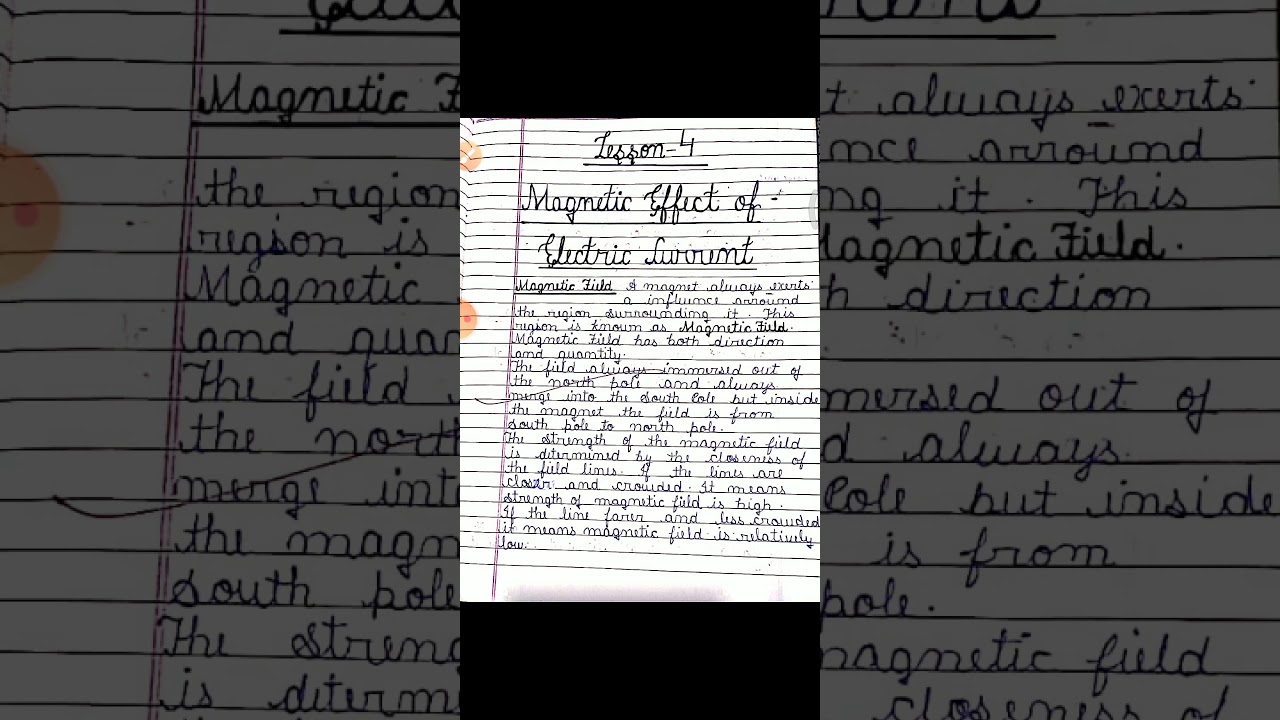 Lesson-4
Magnetic Effect of
Electric Current
Magnetic Field A magnet always exerts
a influence arround
the region surrounding it. This
region is known as Magnetic Field.
Magnetic Field has both direction
and quantity.
The field always immersed out of
the north pole and always
merge into the South Cole but inside
the magnet the field is from
south pole to north pole.
The strength of the magnetic field
is ditermined by the closeness of
the field lines. If the lines are
closer and crowded. It means
strength of magnetic field is high.
If the line farer and less crowded
it means magnetic field is relatively
low.